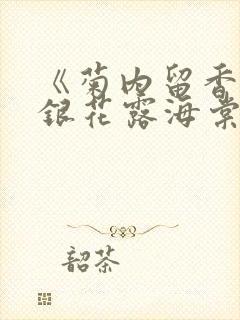 《菊内留香
銀花露海棠
韶茶